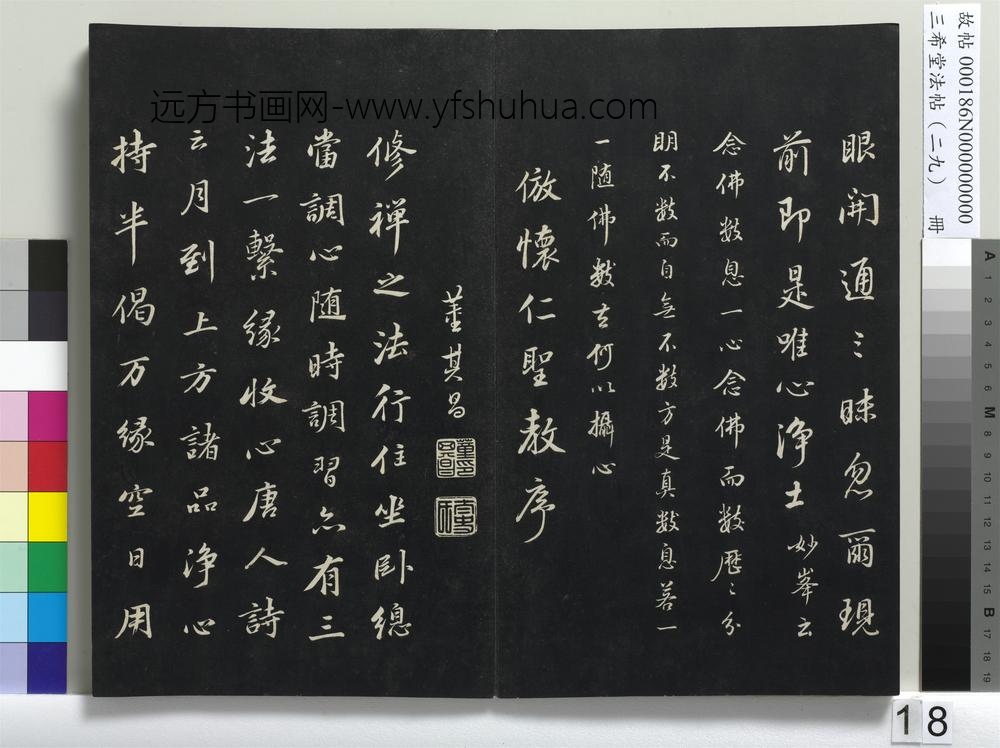 眼開通〻昧忽爾現
前即是唯心浄土妙峯云
念佛數息一心念佛而數歷〻分
明不數而自無不數方是真數息若一
一随佛數去何以攝心
倣懷仁聖教序
董其昌
修禅之法行住坐卧總
當調心随時調習亦有三
法一繫縁收心唐人詩
云月到上方諸品浄心
持半偈万縁空日用
远方书画网-www.yfshuhua.com
故帖 000186N000000000000
三希堂法帖（二九） 冊
18
A 1 2 3 4 5 6 M 8 9 10 11 12 13 14 15 B 17 18 19